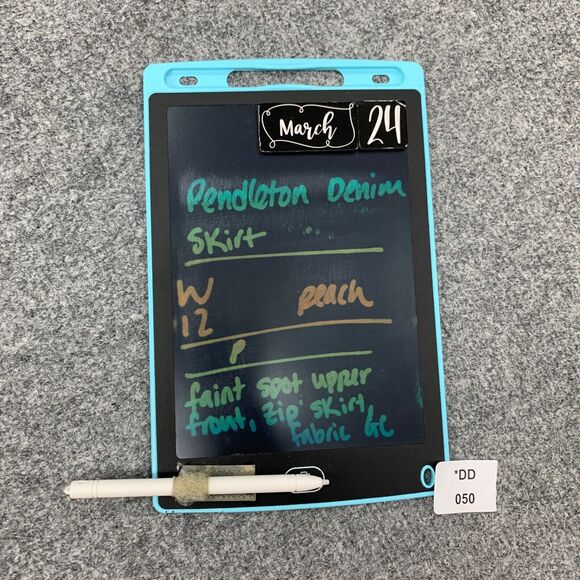 March 24
Pendleton Denim
Skirt
W peach
12
P
faint spot upper
front, zip skirt
fabric GC
*DD
050